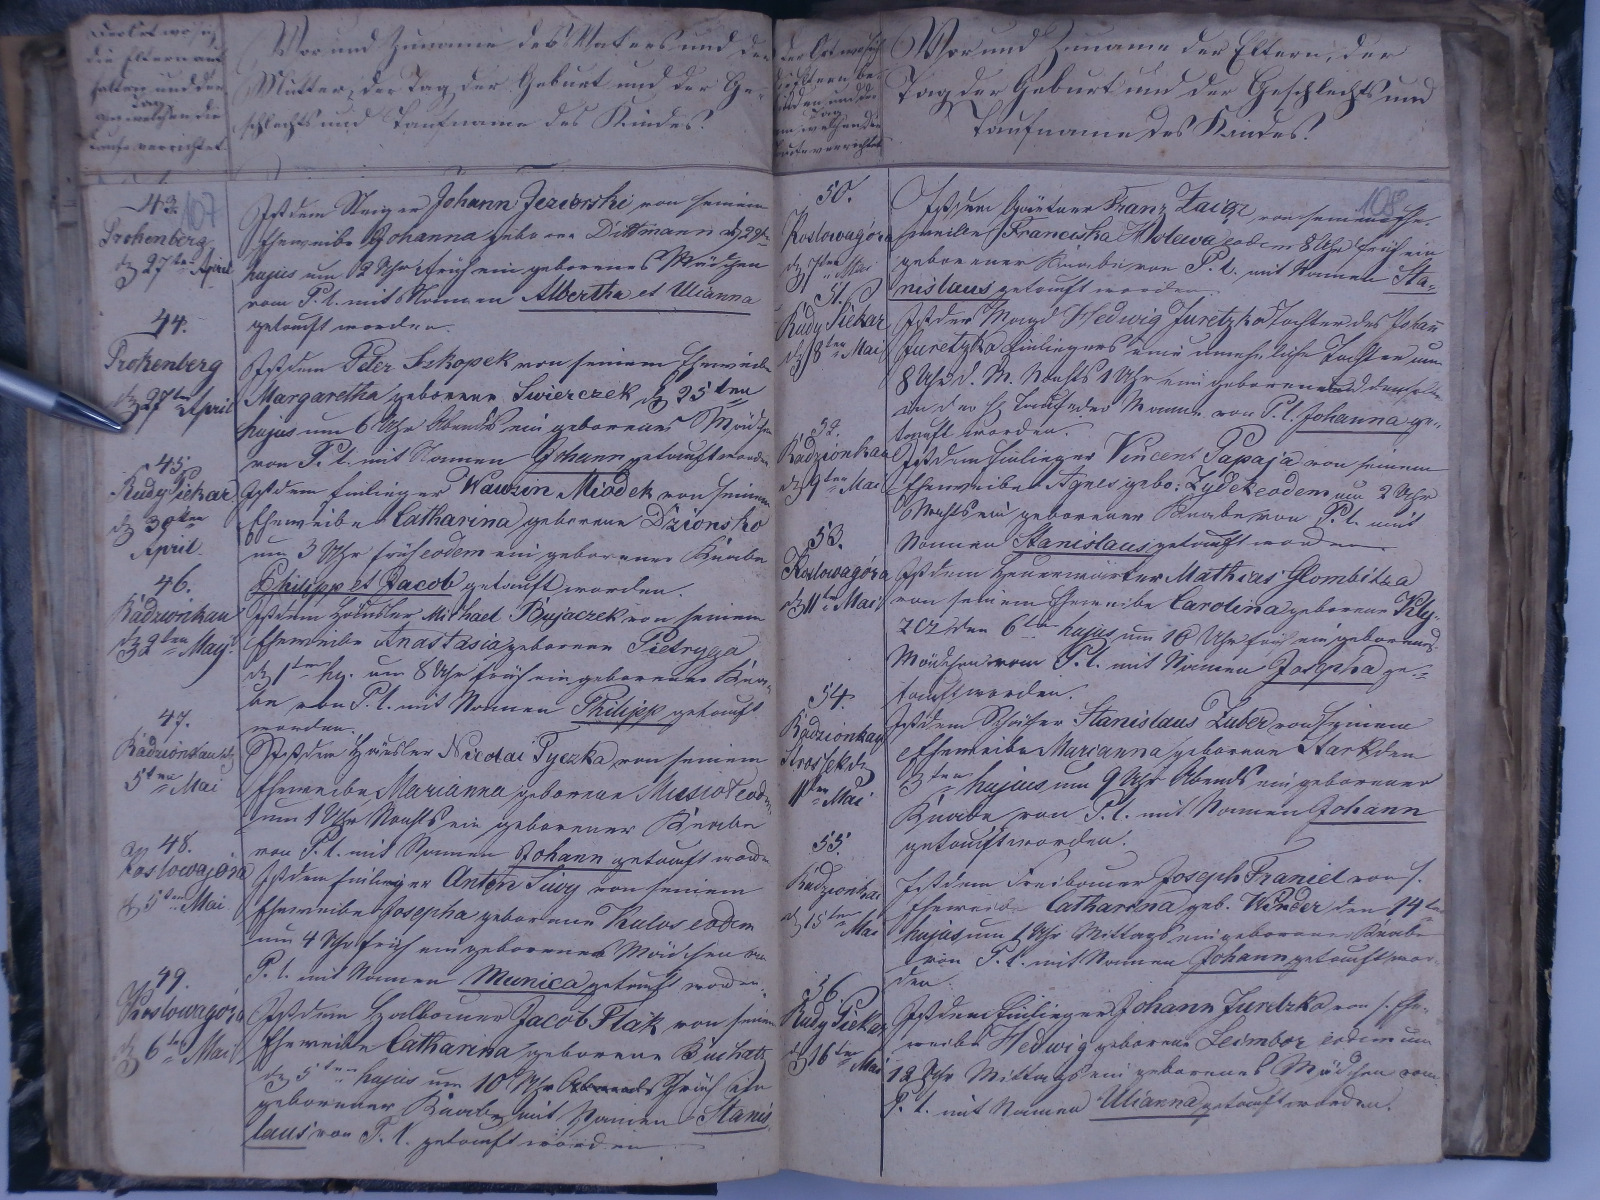 der Ort wo sich
die Eltern auf
halten und der
Tag
an welchen die
Taufe verrichtet
Vor und Zuname des Vaters und der
Mutter, der Tag der Geburt und der Ge-
schlechts und Taufname des Kindes.
43.
107
Prohenberg
27ten April
Ist dem Steiger Johann Jeziorski von seinem
Eheweibe Johanna geborne Dittmann
hujus um Uhr früh ein geborenes Mädchen
vom P. l. mit Namen Albertha et Ulianna
getauft worden.
44.
Prohenberg
27ten April
Ist dem Peter Szkopek von seinem Eheweibe
Margaretha geborene Swierczek d. 25ten
hujus um 6 Uhr Abends ein geborenes Mädchen
von P. l. mit Namen Johann getauft worden
45.
Rudy Piekar
d. 30ten
April.
Ist dem Einlieger Wawrzin Miodek von seinem
Eheweibe Catharina geborene Dzionsko
um 3 Uhr früh eodem ein geborener Knabe
Philipp et Jacob getauft worden.
46.
Radzionkau
d. 2ten May
Ist dem Häusler Michael Bujaczek von seinem
Eheweibe Anastasia geborene Pietryga
d. 1ten hj. um 8 Uhr früh ein geborener Kna-
be von P. l. mit Namen Philipp getauft
worden.
47.
Radzionkau
5ten Mai
Ist dem Häusler Nicolai Tyczka von seinem
Eheweibe Marianna geborene Musiol eodem
um 1 Uhr Nachts ein geborener Knabe
von P. l. mit Namen Johann getauft worden
48.
Koslowagóra
d. 5ten Mai
Ist dem Einlieger Anton Suwy von seinem
Eheweibe Josepha geborene Kulos eodem
um 4 Uhr früh ein geborenes Mädchen von
P. l. mit Namen Munica getauft worden.
49.
Koslowagóra
d. 6ten Mai
Ist dem Halbbauer Jacob Ptak von seinem
Eheweibe Catharina geborene
d. 5ten hujus um 10 Uhr Abends früh ein
geborener Knabe mit Namen Stanis
laus von P. l. getauft worden
der Ort wo sich
die Eltern be-
finden und der
Tag
an welchen die
Taufe verrichtet
Vor und Zuname der Eltern, der
Tag der Geburt und der Geschlechts und
Taufname des Kindes.
50.
108
Koslowagóra
d. 7ten Mai
Ist dem Gärtner Franz Zaigz von seinem Ehe-
weibe Franciska Molewa eodem 8 Uhr früh ein
geborener Knabe von P. l. mit Namen Sta-
nislaus getauft worden.
51.
Rudy Piekar
d. 8ten Mai
Ist der Magd Hedwig Juretzko Tochter des Johann
Juretzko Einliegers eine uneheliche Tochter um
8 Uhr d. M. Nachts 1 Uhr ein geborene
in der H. Taufe der Name von P. l. Johanna ge-
tauft worden.
52.
Radzionkau
d. 9ten Mai
Ist dem Einlieger Vincent Papaja von seinem
Eheweibe Agnes gebo: Zydek eodem um 2 Uhr
Nachts ein geborener Knabe von P. l. mit
Namen Stanislaus getauft worden.
53.
Koslowagóra
d. 11ten Mai
Ist dem Heuerwärter Mathias Glombitza
von seinem Eheweibe Carolina geborene Kly-
zcz den 6ten hujus um 10 Uhr früh ein geborenes
Mädchen vom P. l. mit Namen Josepha ge-
tauft worden.
54.
Radzionkau
Stroszek d.
11ten Mai
Ist dem Schäfer Stanislaus Zuber von seinem
Eheweibe Marianna geborene Stark den
3ten hujus um 9 Uhr Abends ein geborener
Knabe von P. l. mit Namen Johann
getauft worden.
55.
Radzionkau
d. 15ten Mai
Ist dem Freibauer Joseph Franiel von s.
Eheweibe Catharina geb. Winder den 14ten
hujus um 1 Uhr Mittags ein geborener Knabe
von P. l. mit Namen Johann getauft wor-
den.
56.
Rudy Piekar
d. 16ten Mai
Ist dem Einlieger Johann Juretzko von s. Ehe-
weibe Hedwig geborene Leimbor eodem um
12 Uhr Mittags ein geborenes Mädchen vom
P. l. mit Namen Ulianna getauft worden.